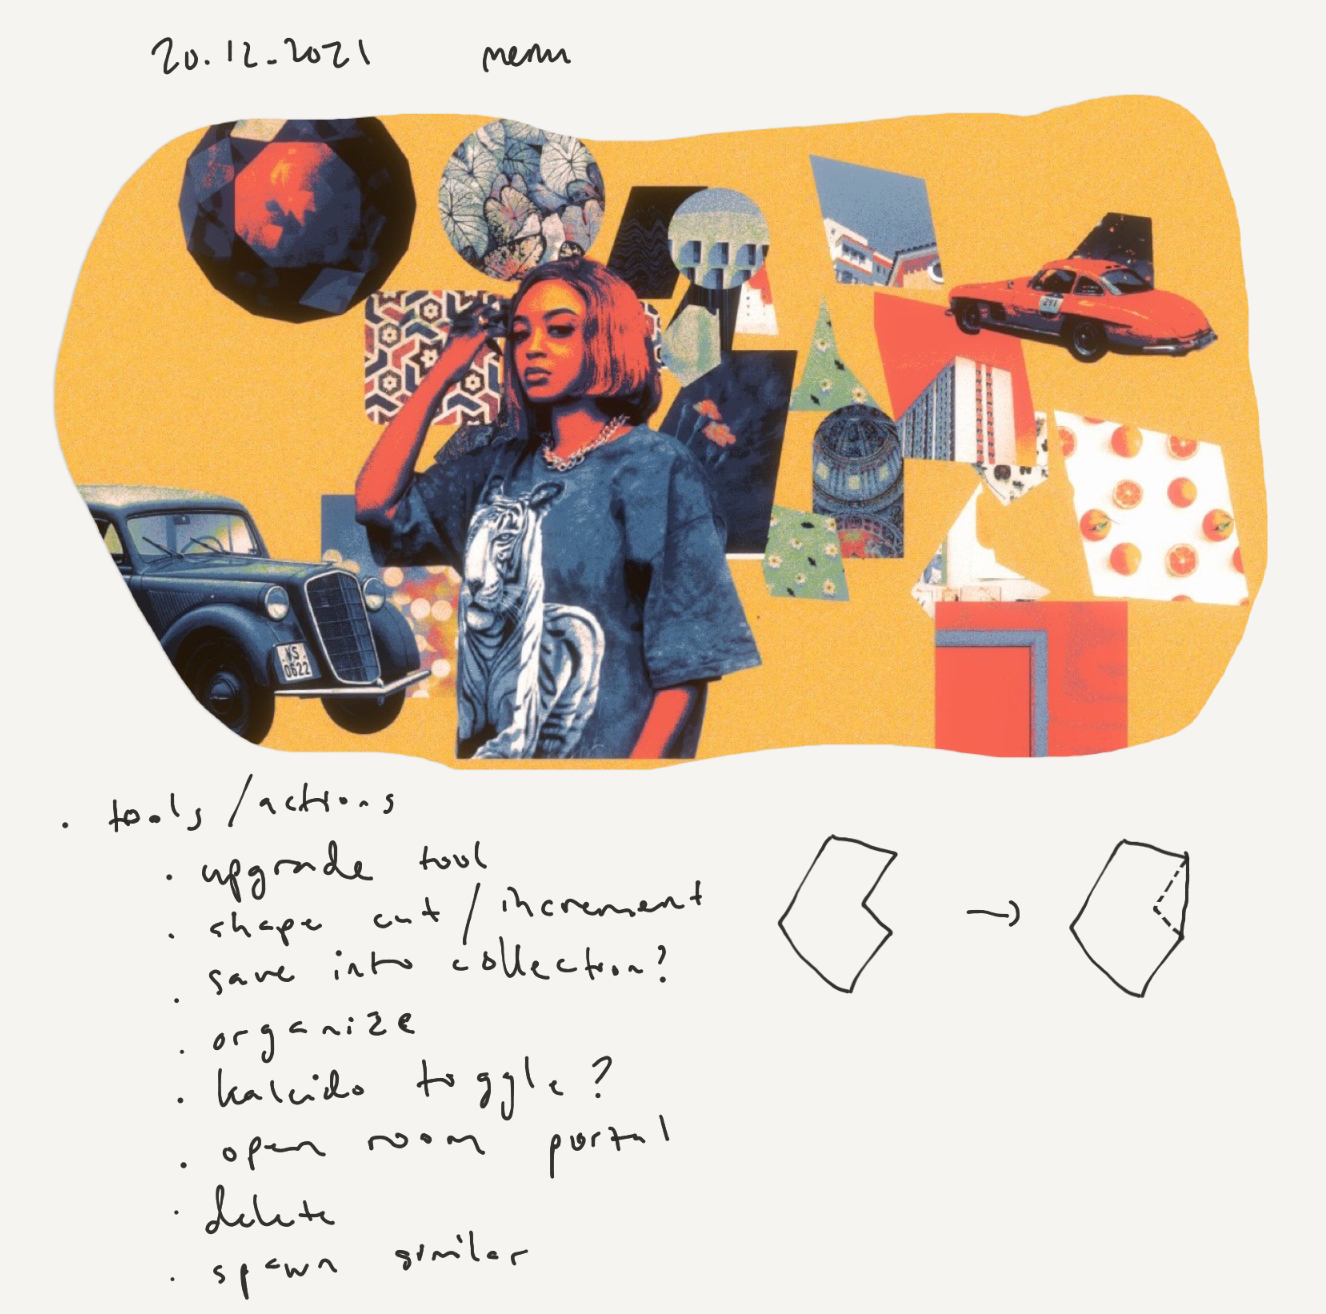 20.12.2021 menu
291
VS
0622
· tools/actions
· upgrade tool
· shape cut/increment
· save into collection?
· organize
· kaleido toggle?
· open room portal
· delete
· spawn similar